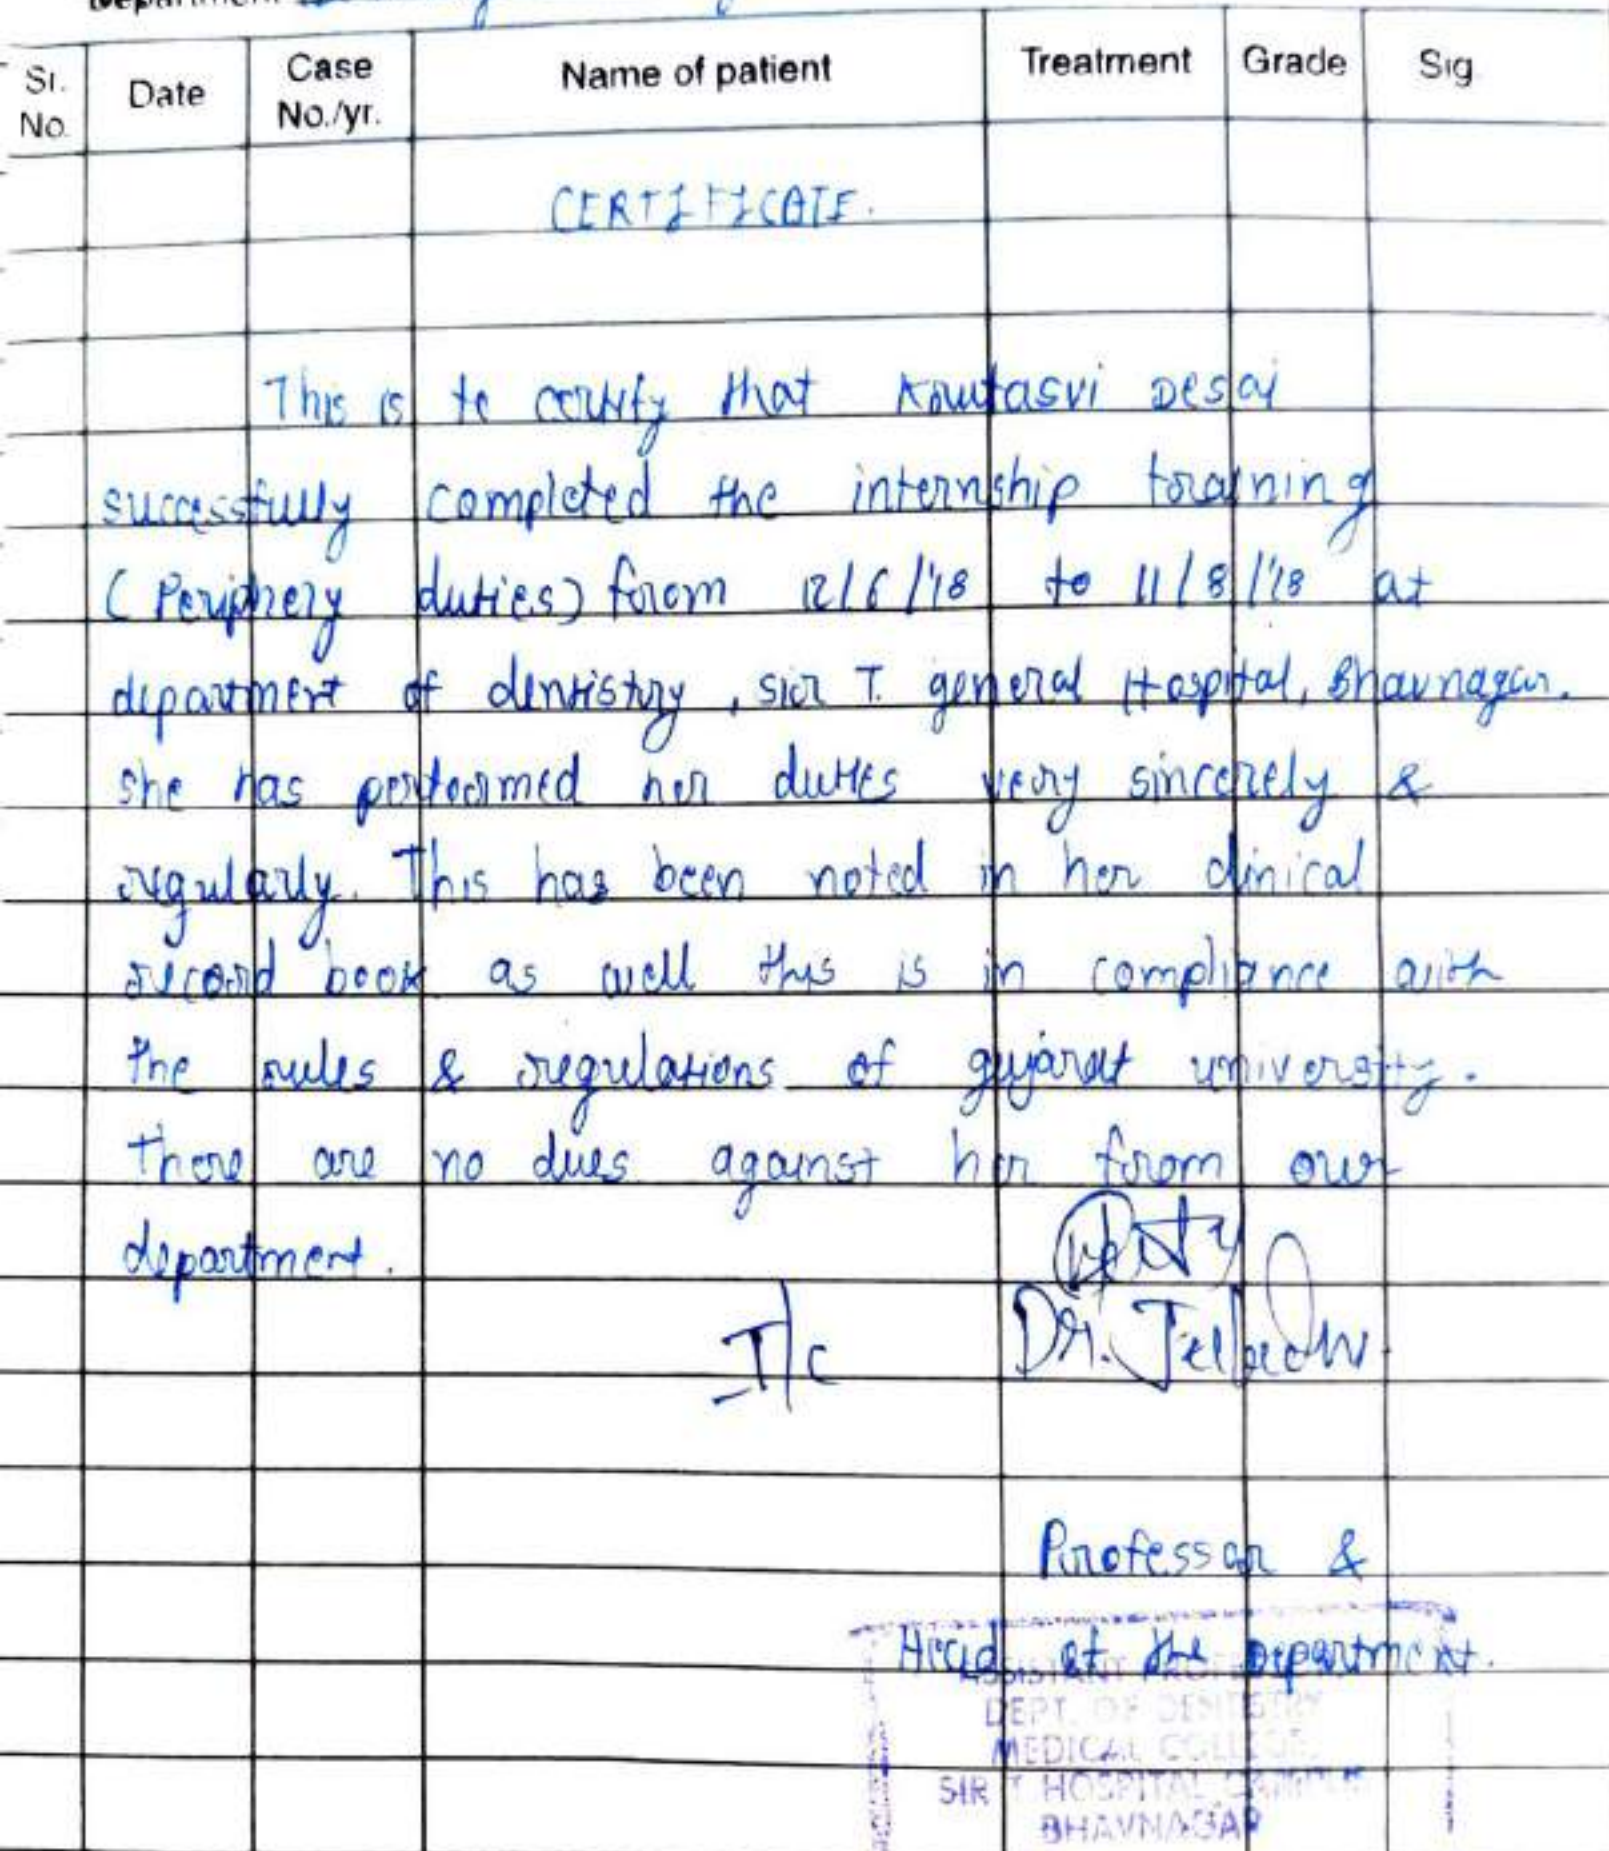 Department
Sr. No. Date Case No./yr. Name of patient Treatment Grade Sig
CERTIFICATE.
This is to certify that Krutasvi Desai
successfully completed the internship training
(Periphery duties) from 12/6/'18 to 11/8/'18 at
department of dentistry, sir T. general Hospital, Bhavnagar.
she has performed her duties very sincerely &
regularly. This has been noted in her clinical
record book as well this is in compliance with
the rules & regulations of gujarat university.
There are no dues against her from our
department.
I/c Dr.
Professor &
Head of the Department.
ASSISTANT PROFESSOR
DEPT. OF DENTISTRY
MEDICAL COLLEGE,
SIR T. HOSPITAL CAMPUS
BHAVNAGAR